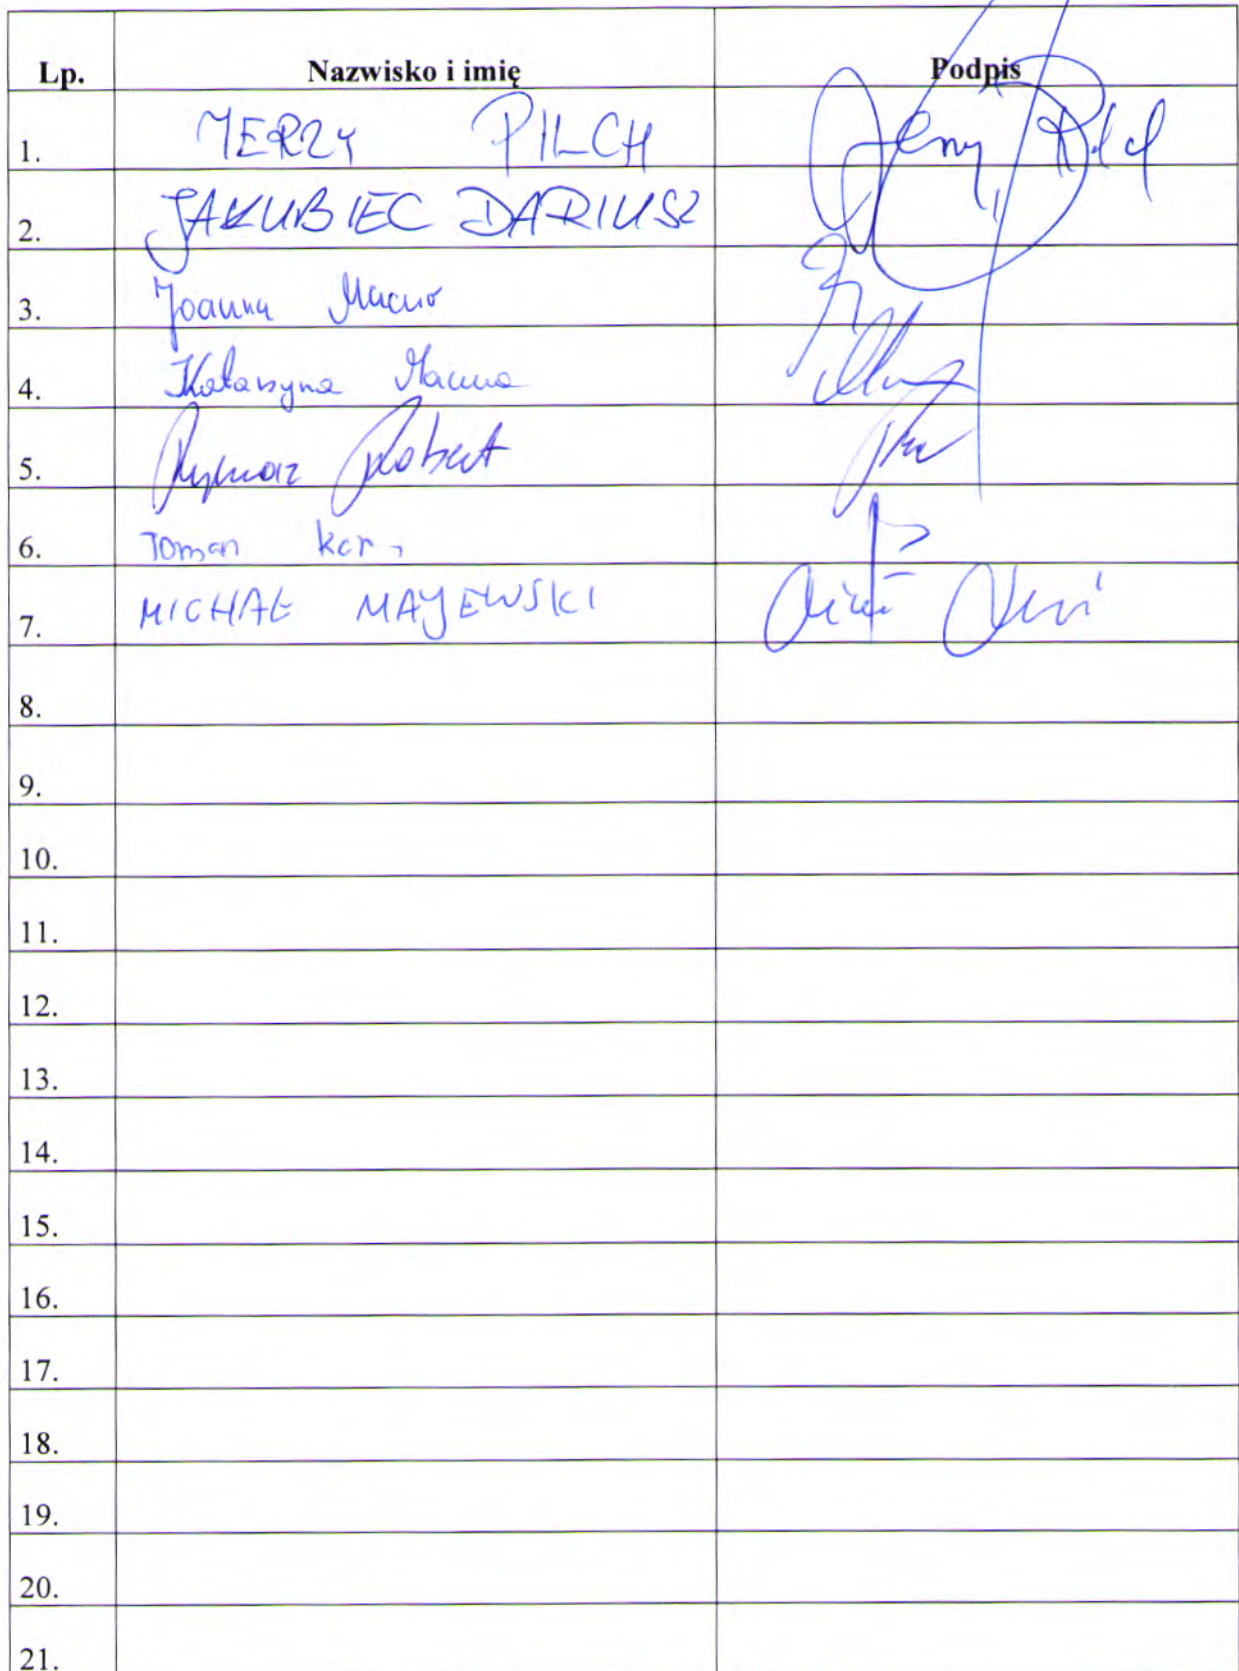 Lp. Nazwisko i imię Podpis
1. JERZY PILCH Jerzy Pilch
2. JAKUBIEC DARIUSZ
3. Joanna
4. Katarzyna
5. Rymorz Robert
6. Toman
7. MICHAŁ MAJEWSKI
8.
9.
10.
11.
12.
13.
14.
15.
16.
17.
18.
19.
20.
21.